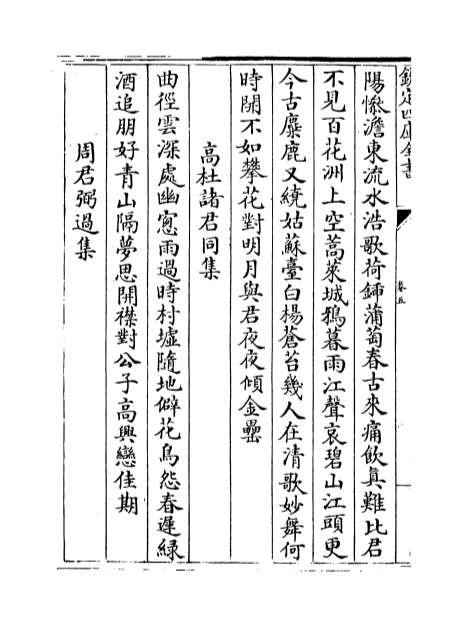 欽定四庫全書
卷五
陽愀澹東流水浩歌荷鍤蒲萄春古來痛飲真難比君
不見百花洲上空蒿萊城鴉暮雨江聲哀碧山江頭更
今古麋鹿又繞姑蘇臺白楊蒼苔幾人在清歌妙舞何
時閒不如攀花對明月與君夜夜傾金罍
高杜諸君同集
曲徑雲深處幽窻雨過時村墟隨地僻花鳥怨春遲綠
酒追朋好青山隔夢思開襟對公子高興戀佳期
周君弼過集